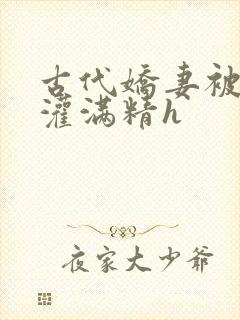 古代嬌妻被
灌满精h
夜家大少爷